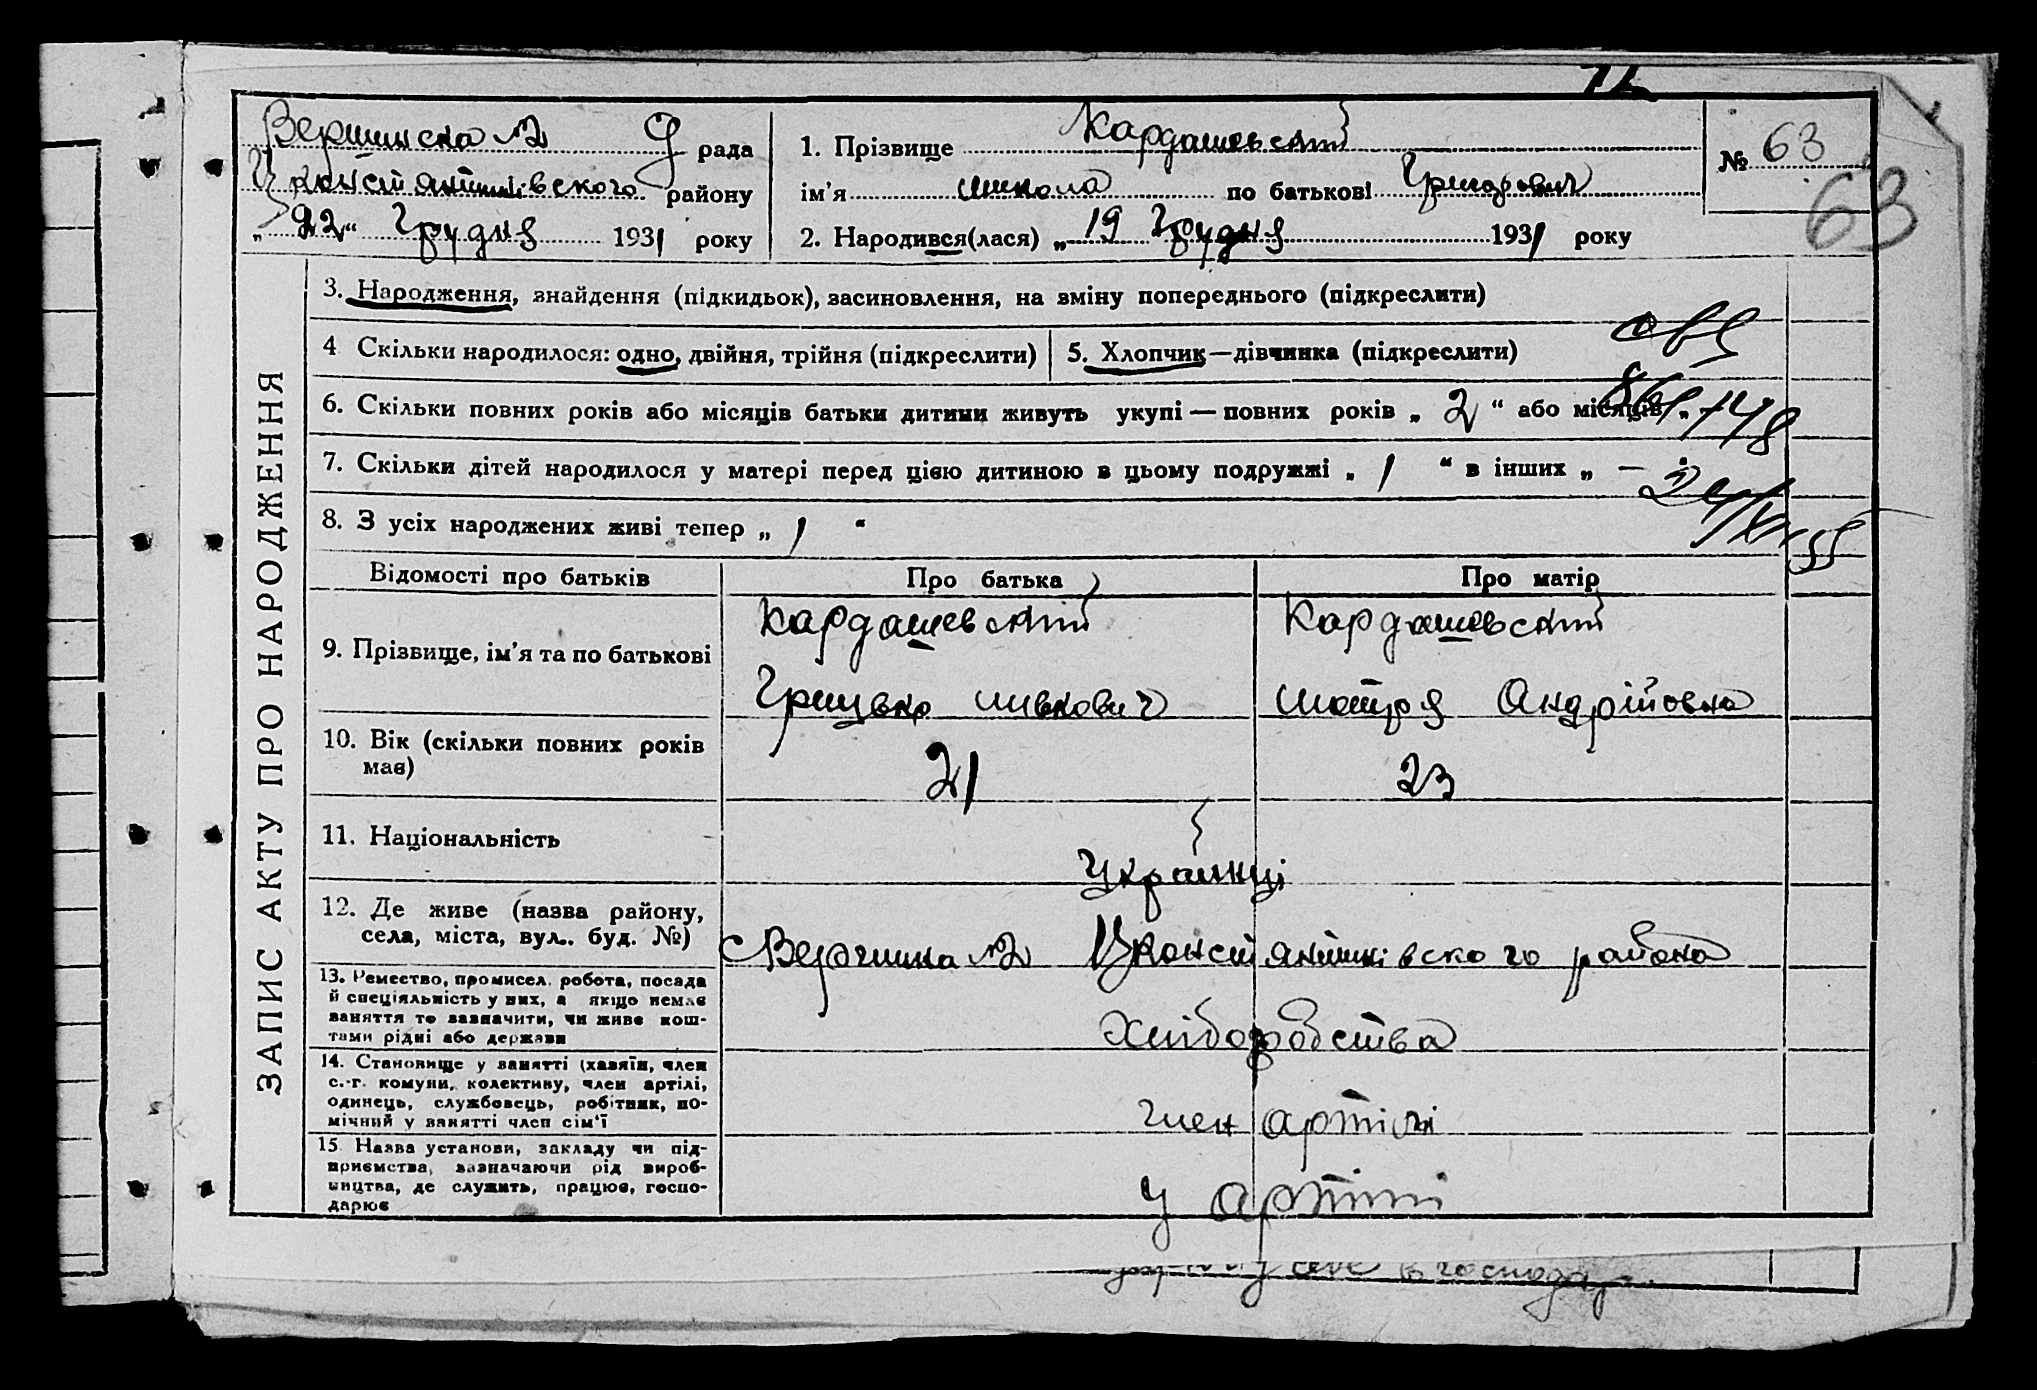 Вершинска №2 С рада
Конст янтинівского району
„ 22 “ Грудня 1931 року
1. Прізвище Кардашевский
ім’я микола по батькові Григорович
2. Народився(лася) „ 19 Грудня 1931 року
№ 63
63
ЗАПИС АКТУ ПРО НАРОДЖЕННЯ
3. Народження, знайдення (підкидьок), засиновлення, на зміну попереднього (підкреслити)
4 Скільки народилося: одно, двійня, трійня (підкреслити)
5. Хлопчик—дівчинка (підкреслити)
6. Скільки повних років або місяців батьки дитини живуть укупі — повних років „ 2 “ або місяців „ —
7. Скільки дітей народилося у матері перед цією дитиною в цьому подружжі „ 1 “ в інших „ —
8. З усіх народжених живі тепер „ 1 “
Відомості про батьків Про батька Про матір
9. Прізвище, ім’я та по батькові
Кардашевский Кардашевский
Грицько мивкович мотря Андрійовна
10. Вік (скільки повних років має)
21 23
11. Національність
Українці
12. Де живе (назва району, села, міста, вул.. буд. №)
Вершина №2 Констянтинівского района
13. Ремество, промисел, робота, посада
й спеціяльність у них, а якщо немає
заняття то зазначити, чи живе кош-
тами рідні або держави
Хліборобства
14. Становище у занятті (хазяїн, член
с.-г. комуни, колективу, член артілі,
одинець, службовець, робітник, по-
мічний у занятті член сім’ї
член артілі
15 Назва установи, закладу чи під-
приємства, зазначаючи рід вироб-
ництва, де служить, працює, госпо-
дарює
У артілі